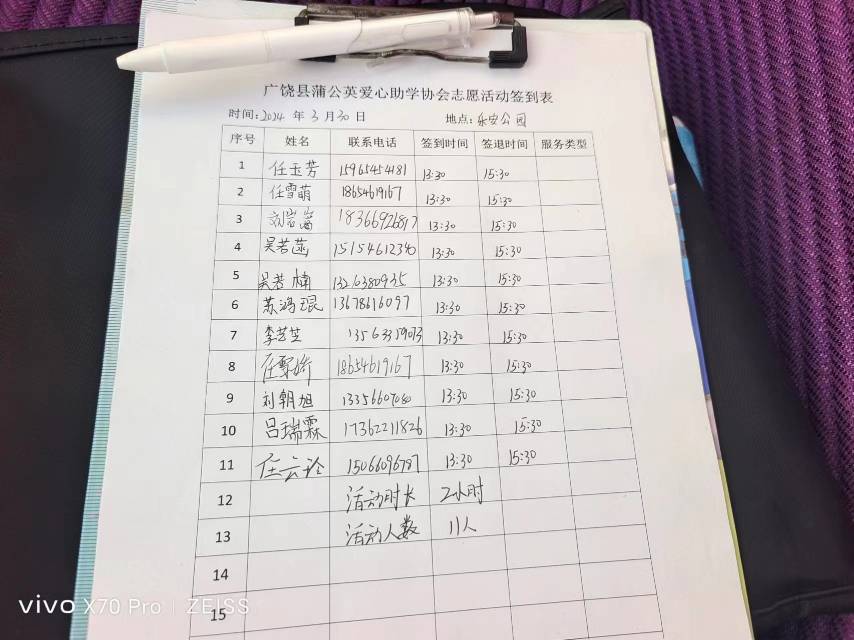 广饶县蒲公英爱心助学协会志愿活动签到表
时间:2024 年 3 月 30 日 地点:乐安公园
序号 姓名 联系电话 签到时间 签退时间 服务类型
1 任玉芳 15965454181 13:30 15:30
2 任雪萌 18654619167 13:30 15:30
3 刘岩岩 18366926817 13:30 15:30
4 吴若菡 15154612340 13:30 15:30
5 吴若楠 1326380935 13:30 15:30
6 苏鸿琨 13678616097 13:30 15:30
7 李艺笙 13563359073 13:30 15:30
8 任 18654619167 13:30 15:30
9 刘朝旭 13356607080 13:30 15:30
10 吕瑞霖 17362211826 13:30 15:30
11 任云 15066096787 13:30 15:30
12 活动时长 2小时
13 活动人数 11人
14
15
vivo X70 Pro | ZEISS